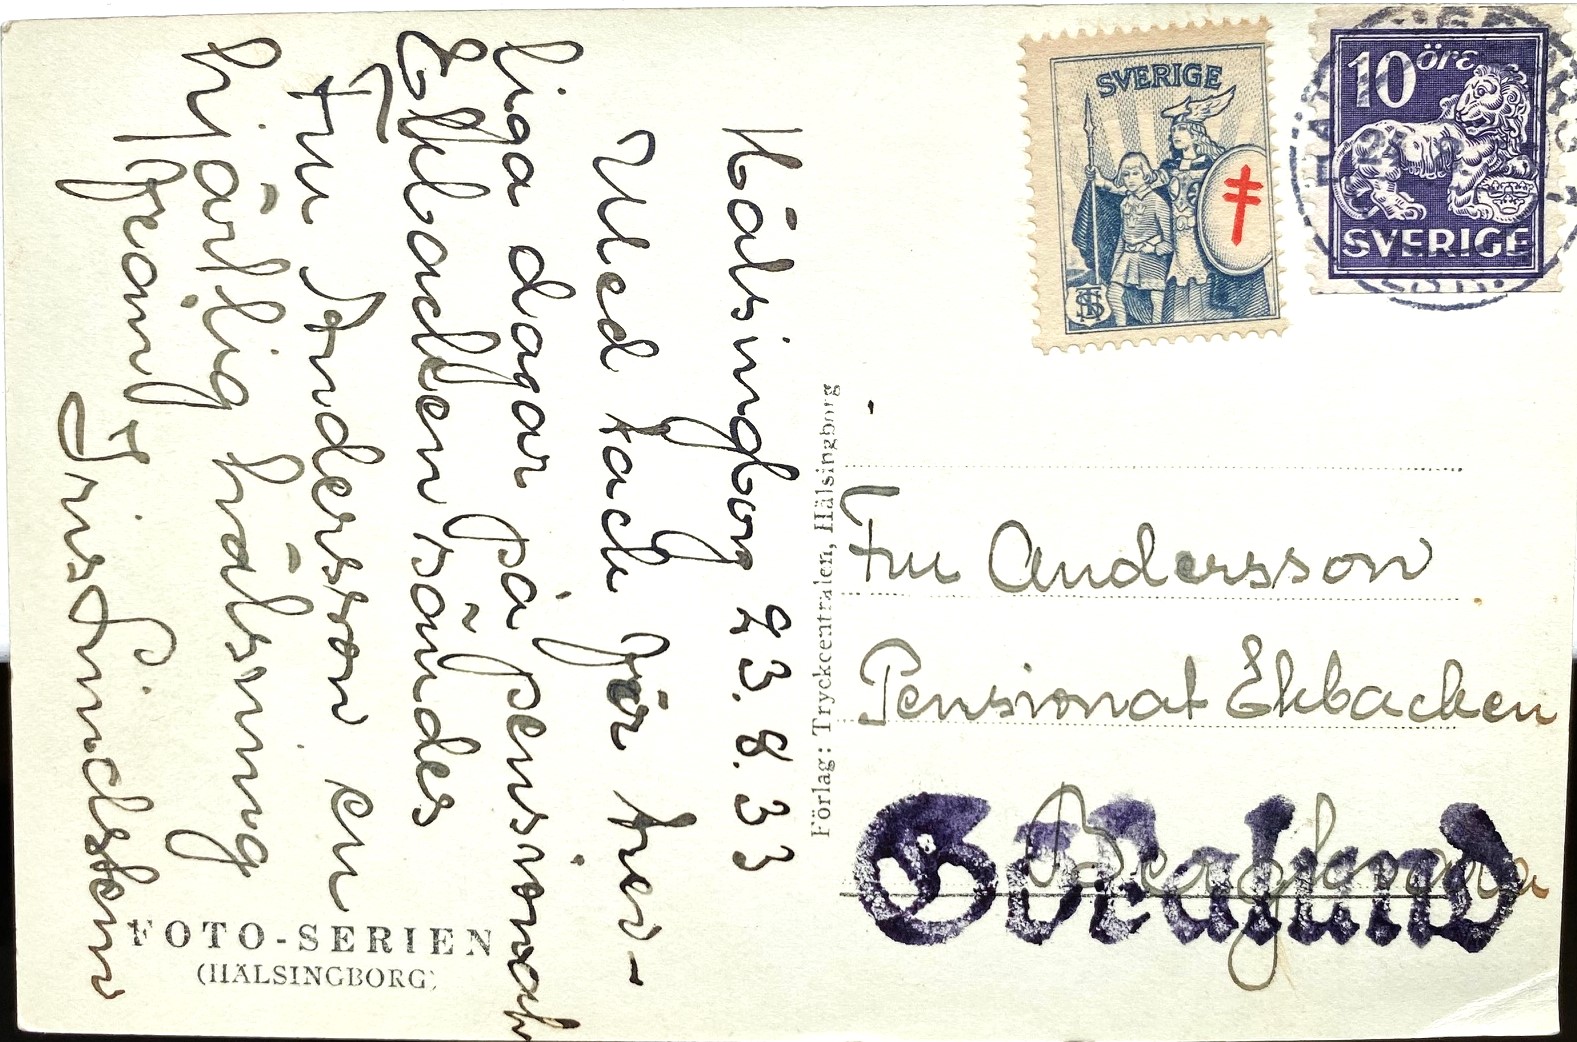 Hälsingborg 23.8.33
Med tack för trev-
liga dagar på pensionat
Ekbacken sändes
Fru Andersson en
hjärtlig hälsning
genom
Iris Lindstens
FOTO-SERIEN
(HÄLSINGBORG)
Förlag: Tryckcentralen, Hälsingborg
SVERIGE
10 öre
SVERIGE
Fru Andersson
Pensionat Ekbacken